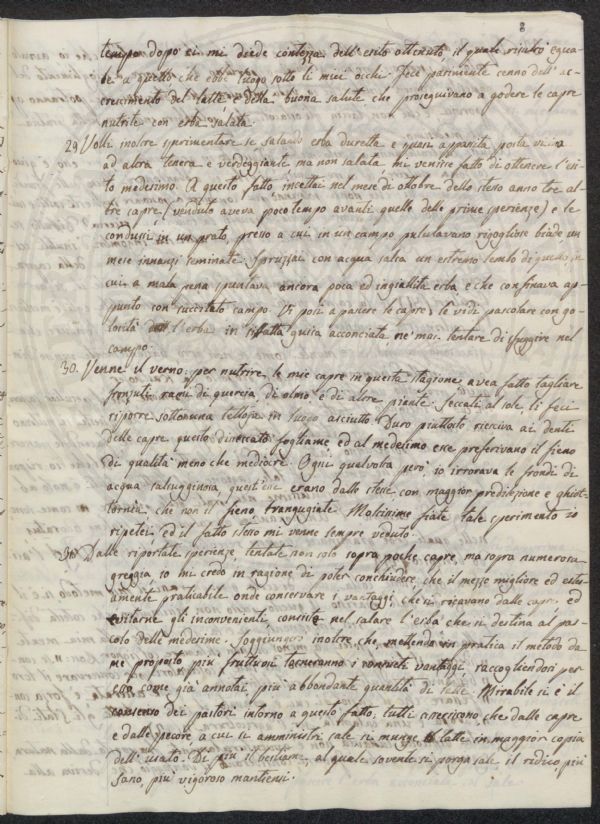 8
tempo dopo ei mi diede contezza dell'esito ottenuto, il quale riuscì egua-
le a quello che ebbe luogo sotto li miei occhi. Fece parimente cenno dell'ac-
crescimento del latte e della buona salute che proseguivano a godere le capre
nutrite con erba salata.
29. Volli inoltre sperimentare se salando erba duretta e quasi appassita posta vicina
ad altra tenera e verdeggiante, ma non salata mi venisse fatto di ottenere l'esi-
to medesimo. A questo fatto incettai nel mese di ottobre dello stesso anno tre al-
tre capre (venduto aveva poco tempo avanti quelle delle prime sperienze) e le
condussi in un prato, presso a cui in un campo pululavano rigogliose biade un
mese innanzi seminate. Spruzzai con acqua salsa un estremo lembo di in
cui a mala pena spuntava ancora poca ed ingiallita erba e che confinava ap-
punto con succitato campo. Vi posi a pascere le capre, le vidi pascolare con go-
losità l'erba in siffatta guisa acconciata ne mai tentare di fuggire nel
campo.
30. Venne il verno: per nutrire le mie capre in questa stagione avea fatto tagliare
fronzuti rami di quercia, di olmo, e di altre piante: seccati al sole li feci
riporre sotto una tettoja in luogo asciutto. Duro piuttosto riesciva ai denti
delle capre questo disseccato fogliame ed al medesimo esse preferivano il fieno
di qualità meno che mediocre. Ogni qualvolta però io irrorava le frondi di
acqua salsugginosa, queste erano dalle stesse con maggior predilezione e ghiot-
tornia che non il fieno trangugiate. Moltissime fiate tale sperimento io
ripetei ed il fatto stesso mi venne sempre veduto.
31. Dalle riportate sperienze, tentate non solo sopra poche capre, ma sopra numerosa
greggia io mi credo in ragione di poter conchiudere, che il mezzo migliore ed
praticabile onde conservare i vantaggi che si ricavano dalle capre, ed
evitarne gli inconvenienti, consiste nel salare l'erba che si destina al pas-
colo delle medesime. Soggiungerò inoltre che, mettendo in pratica il metodo da
me proposto più fruttuosi torneranno i vantaggi raccogliendosi per
esso come già annotai più abbondante quantità di latte. Mirabile si è il
consenso dei pastori intorno a questo fatto; tutti asseriscono che dalle capre
e dalle pecore a cui si amministri sale si munge il latte in maggior copia
dell'usato. Di più il bestiame, al quale sovente si porga sale il ridico, più
sano, più vigoroso mantiensi.